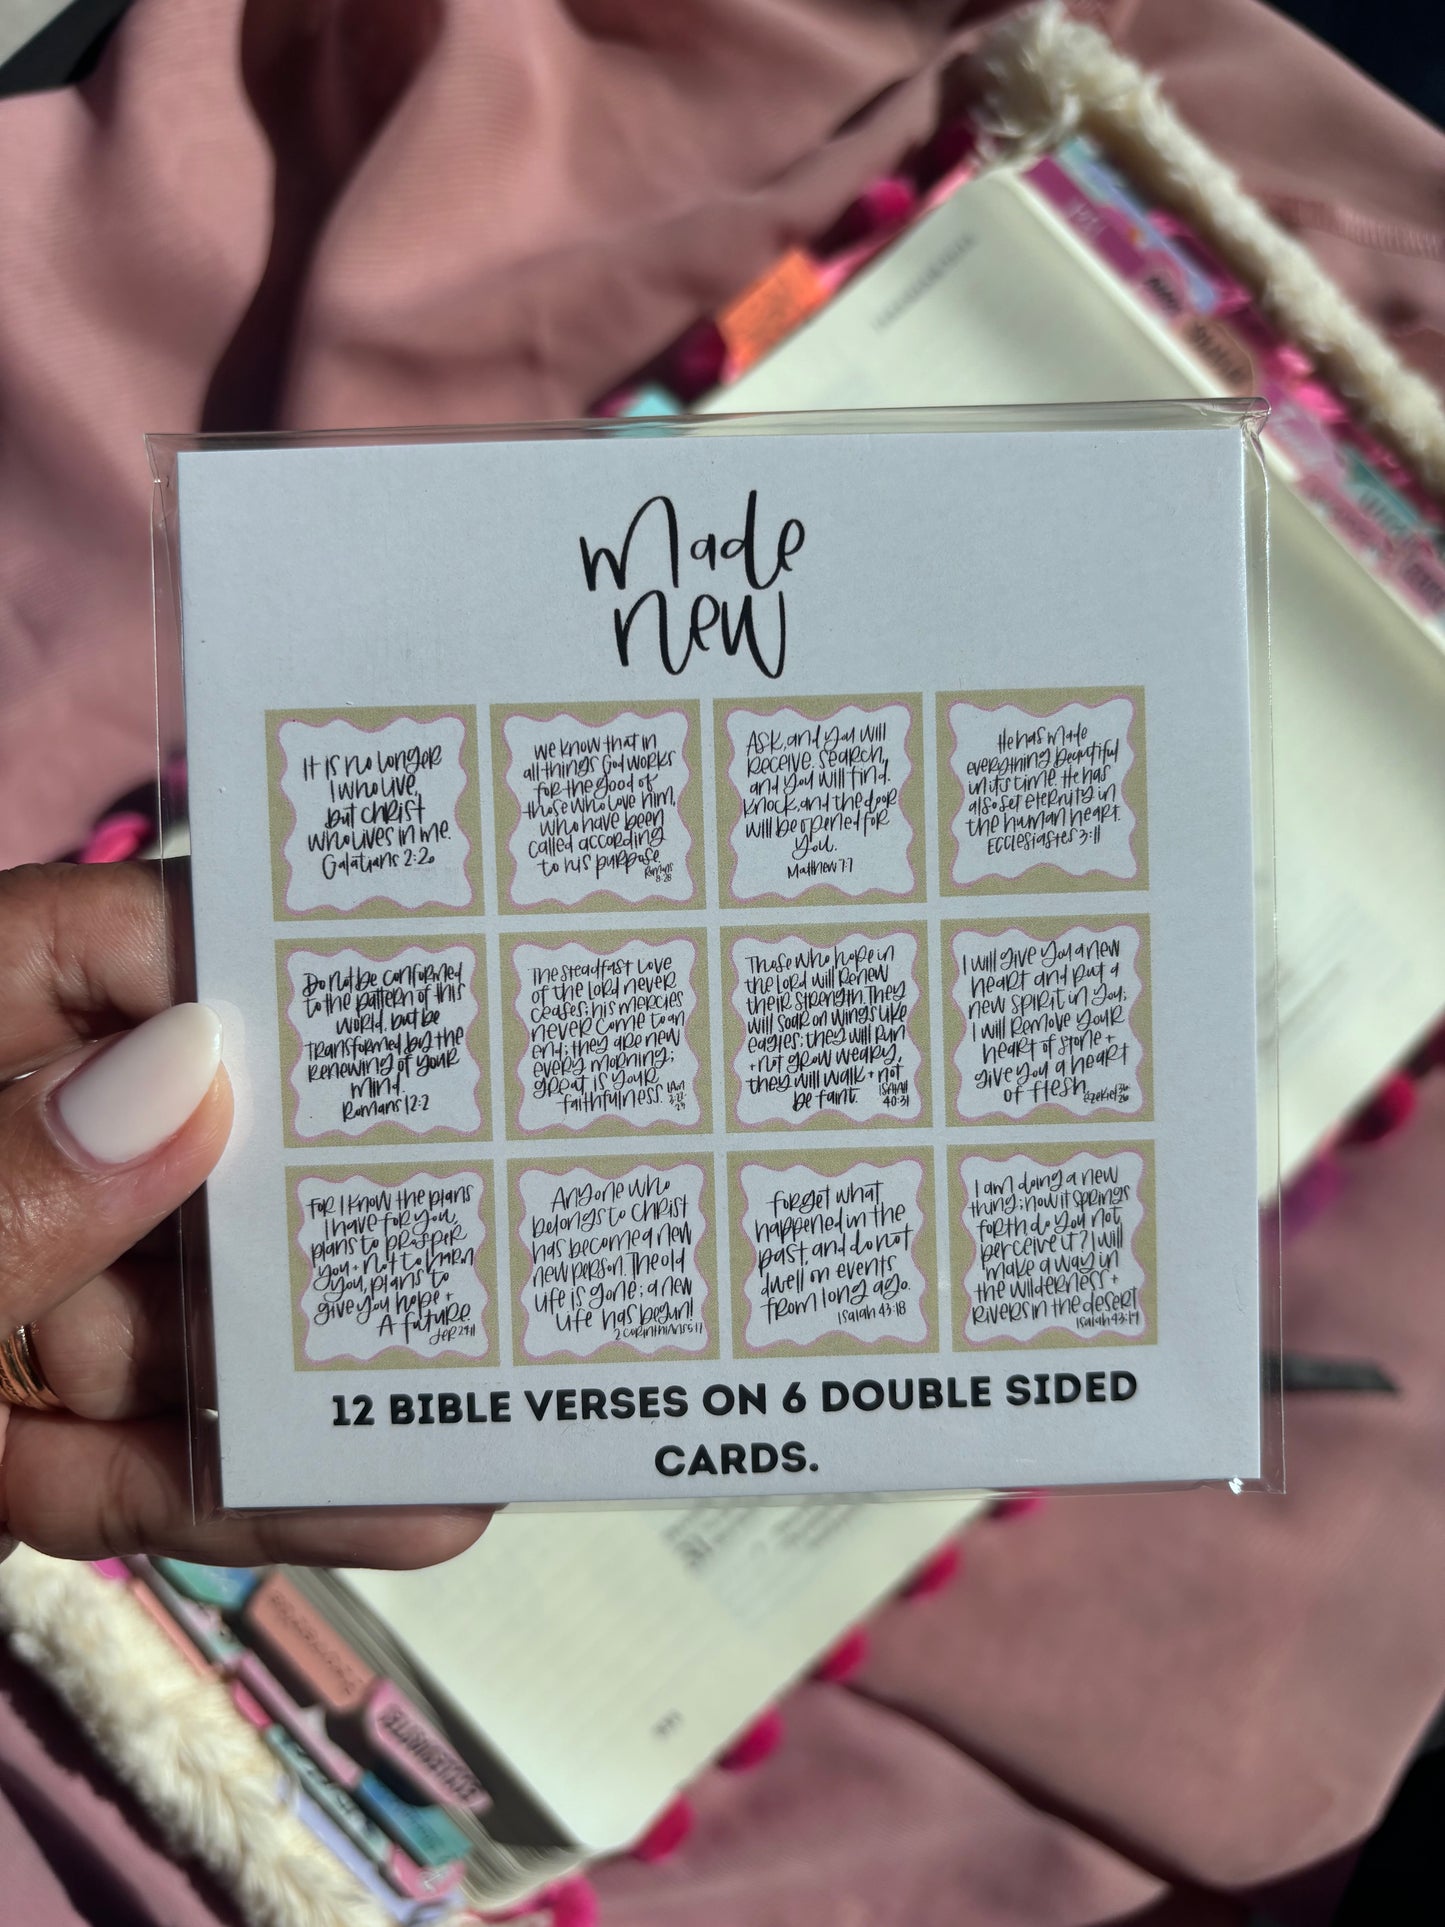 Made
New
It is no longer
I who live,
but Christ
who lives in me.
Galatians 2:20
We know that in
all things God works
for the good of
those who love him,
who have been
called according
to his purpose
Romans
8:28
Ask, and you will
receive. Search,
and you will find.
Knock, and the door
will be opened for
you.
Matthew 7:7
He has made
everything beautiful
in its time. He has
also set eternity in
the human heart.
Ecclesiastes 3:11
Do not be conformed
to the pattern of this
world, but be
transformed by the
renewing of your
mind.
Romans 12:2
The steadfast love
of the Lord never
ceases; his mercies
never come to an
end; they are new
every morning;
great is your
faithfulness.
Those who hope in
the Lord will renew
their strength. They
will soar on wings like
eagles; they will run
+ not grow weary,
they will walk + not
be faint.
Isaiah
40:31
I will give you a new
heart and put a
new spirit in you;
I will remove your
heart of stone +
give you a heart
of flesh.
Ezekiel 36
26
For I know the plans
I have for you,
plans to prosper
you + not to harm
you, plans to
give you hope +
A future.
Jer 29:11
Anyone who
belongs to Christ
has become a new
new person. The old
life is gone; a new
life has begun!
2 Corinthians 5:17
Forget what
happened in the
past, and do not
dwell on events
from long ago.
Isaiah 43:18
I am doing a new
thing; now it springs
forth do you not
perceive it? I will
make a way in
the wilderness +
rivers in the desert
Isaiah 43:19
12 BIBLE VERSES ON 6 DOUBLE SIDED
CARDS.